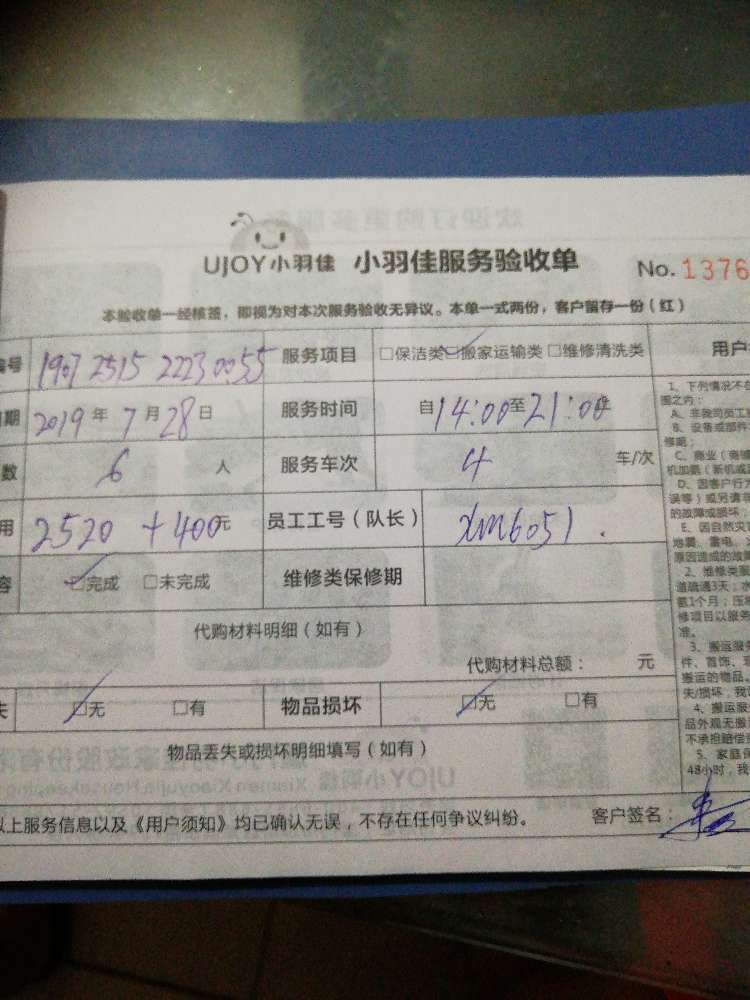 UJOY小羽佳 小羽佳服务验收单 No. 1376
本验收单一经核签，即视为对本次服务验收无异议。本单一式两份，客户留存一份（红）
编号 1907 2515 2223 0055 服务项目 □保洁类 ☑搬家运输类 □维修清洗类 用户
期 2019年7月28日 服务时间 自14:00至21:00
数 6 人 服务车次 4 车/次
用 2520 + 400元 员工工号（队长） xm6051.
容 ☑完成 □未完成 维修类保修期
代购材料明细（如有）
代购材料总额： 元
失 ☑无 □有 物品损坏 ☑无 □有
物品丢失或损坏明细填写（如有）
以上服务信息以及《用户须知》均已确认无误，不存在任何争议纠纷。 客户签名：
1、下列情况不在
围之内：
A、非我司员工
B、设备或部件
修期；
C、商业（商铺
机加氨（新机或
D、因客户行为
误等）或另请
的故障或损坏；
E、因自然灾
地震、雷电、
原因造成的故障
2、维修类服
道疏通3天；水
氨1个月；压
修项目以服务
准。
3、搬运服务
件、首饰、
搬运的物品。
失/损坏，我
4、搬运服
品外观无服
不承担赔偿
5、家庭保
48小时，我